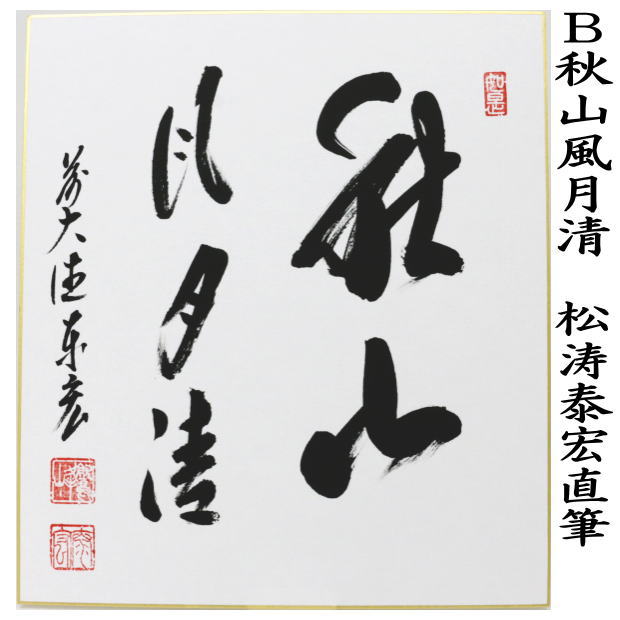 B秋山風月清 松涛泰宏直筆
如是
秋山
風月清
前大徳泰宏